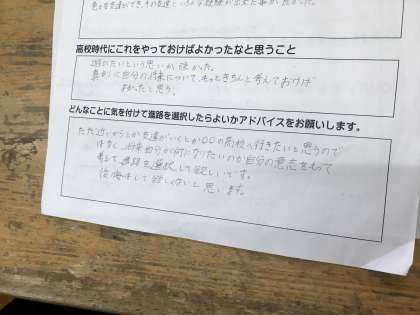 色々な友達ができ
高校時代にこれをやっておけばよかったなと思うこと
遊びたいという思いが強かった。
真剣に自分の将来について、もっときちんと考えておけば
よかったと思う。
どんなことに気を付けて進路を選択したらよいかアドバイスをお願いします。
ただ近いからとか友達がいくとか〇〇の高校へ行きたいと思うので
はなく、将来自分が何になりたいのか自分の意志をもって
進路を選択して欲しいです。
後悔はして欲しくないと思います。